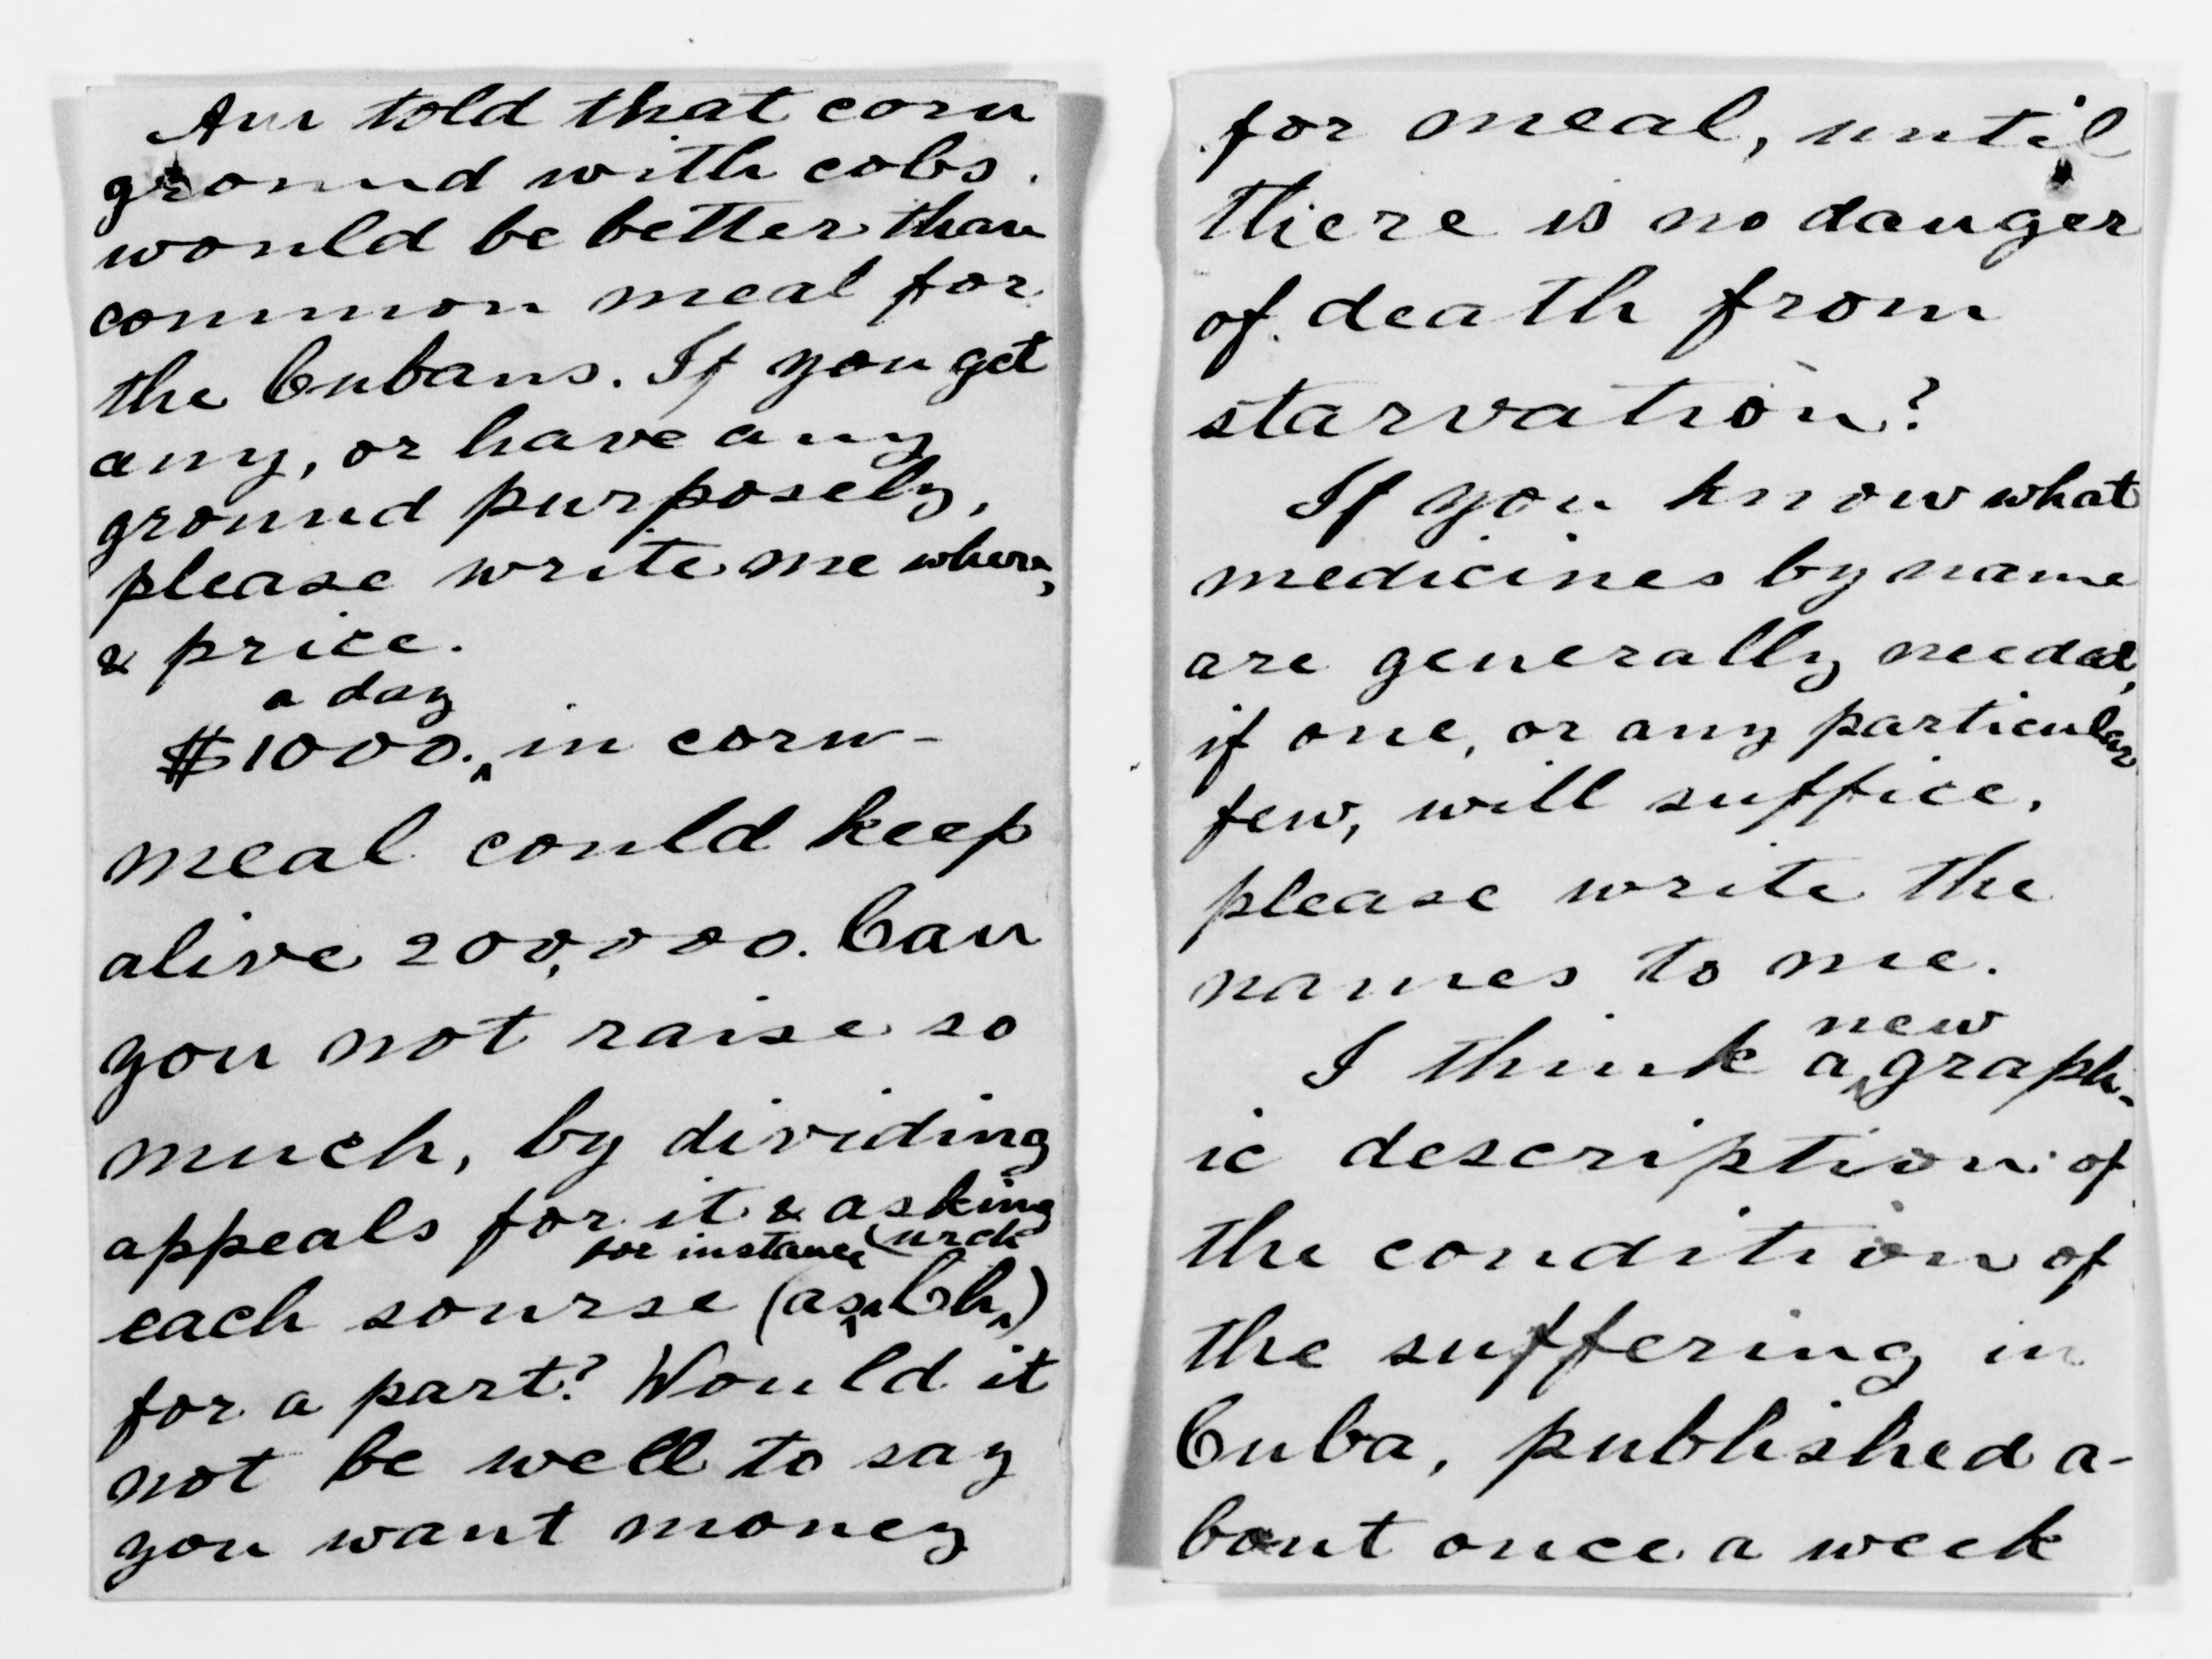 Am told that corn
ground with cobs
would be better than
common meal for
the Cubans. If you get
any, or have any
ground purposely,
please write me where,
& price.
a day
$1000. ‸ in corn-
meal could keep
alive 200,000. Can
you not raise so
much, by dividing
appeals for it & asking
for instance urch
each sourse (as ‸ Ch ‸)
for a part? Would it
not be well to say
you want money
for meal, until
there is no danger
of death from
starvation?
If you know what
medicines by name
are generally needed,
if one, or any particular
few, will suffice,
please write the
names to me.
new
I think a ‸ graph-
ic description of
the condition of
the suffering in
Cuba, published a-
bout once a week